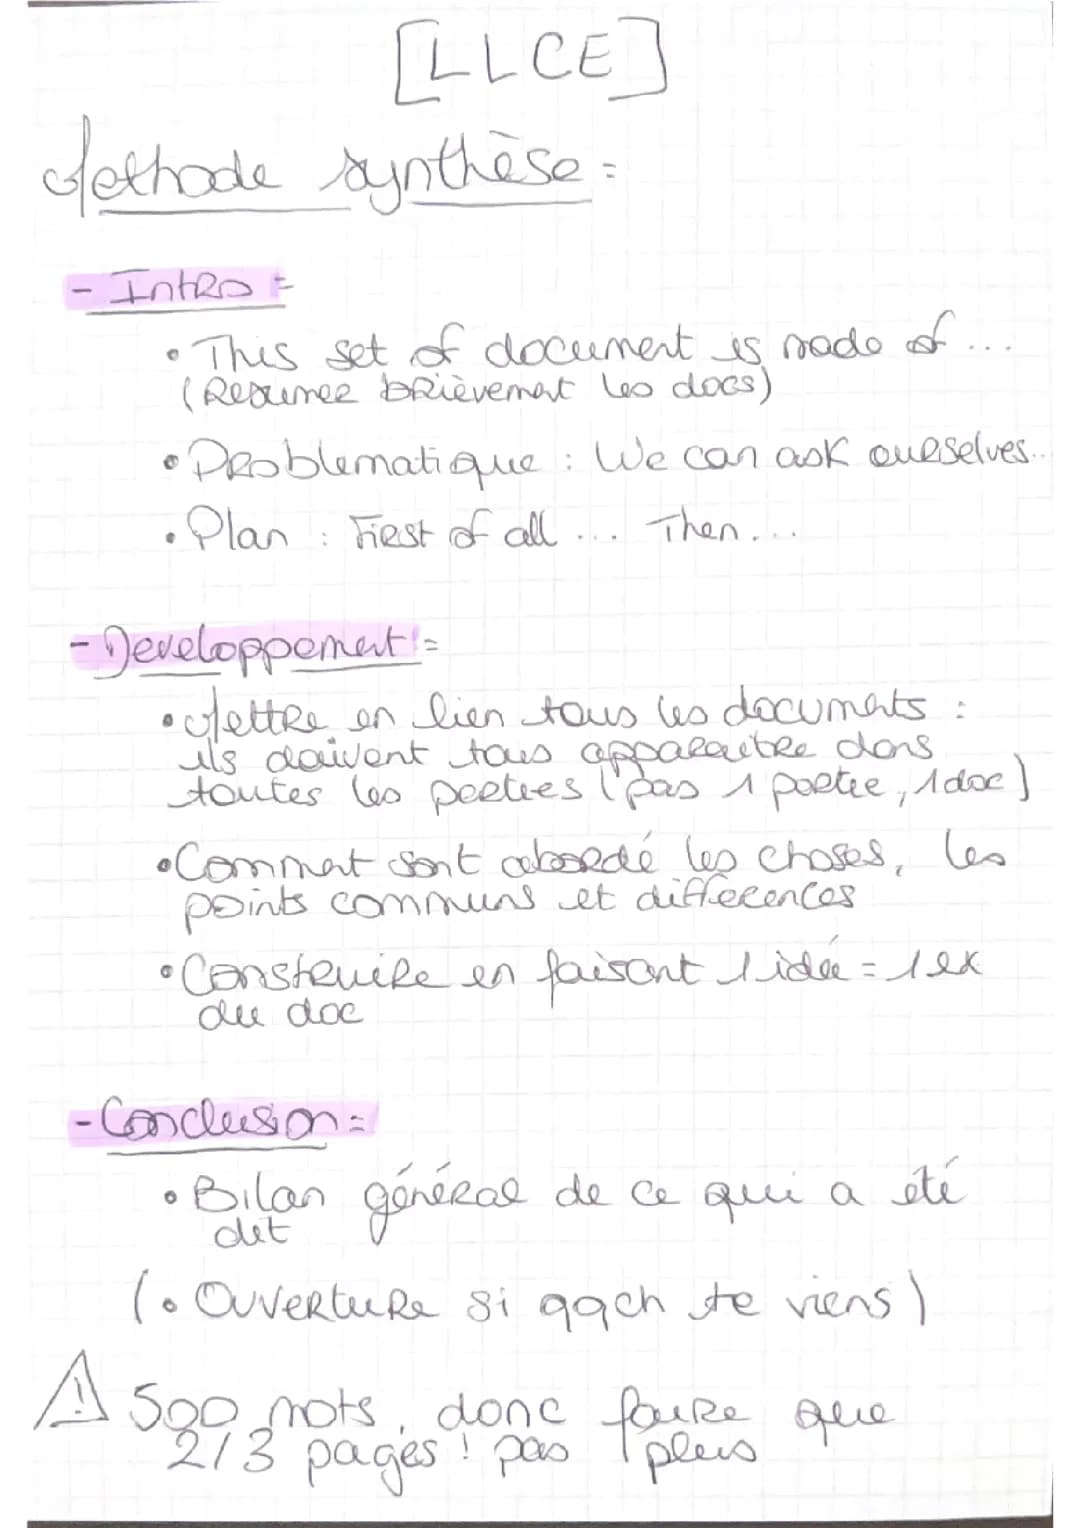 [LLCE]
Methode synthèse :
- Intro :
• This set of document is made of ...
(Resumer brièvement les docs)
• Problematique : We can ask ourselves..
• Plan : First of all ... Then ...
- Developpement :
• Mettre en lien tous les documents :
ils doivent tous apparaitre dans
toutes les parties (pas 1 partie, 1 doc)
• Comment sont abordé les choses, les
points communs et differences
• Construire en faisant 1 idée = 1 ex
du doc
- Conclusion :
• Bilan général de ce qui a été
dit
(• Ouverture si qqch te viens)
⚠ 500 mots, donc faire que
2/3 pages ! pas plus